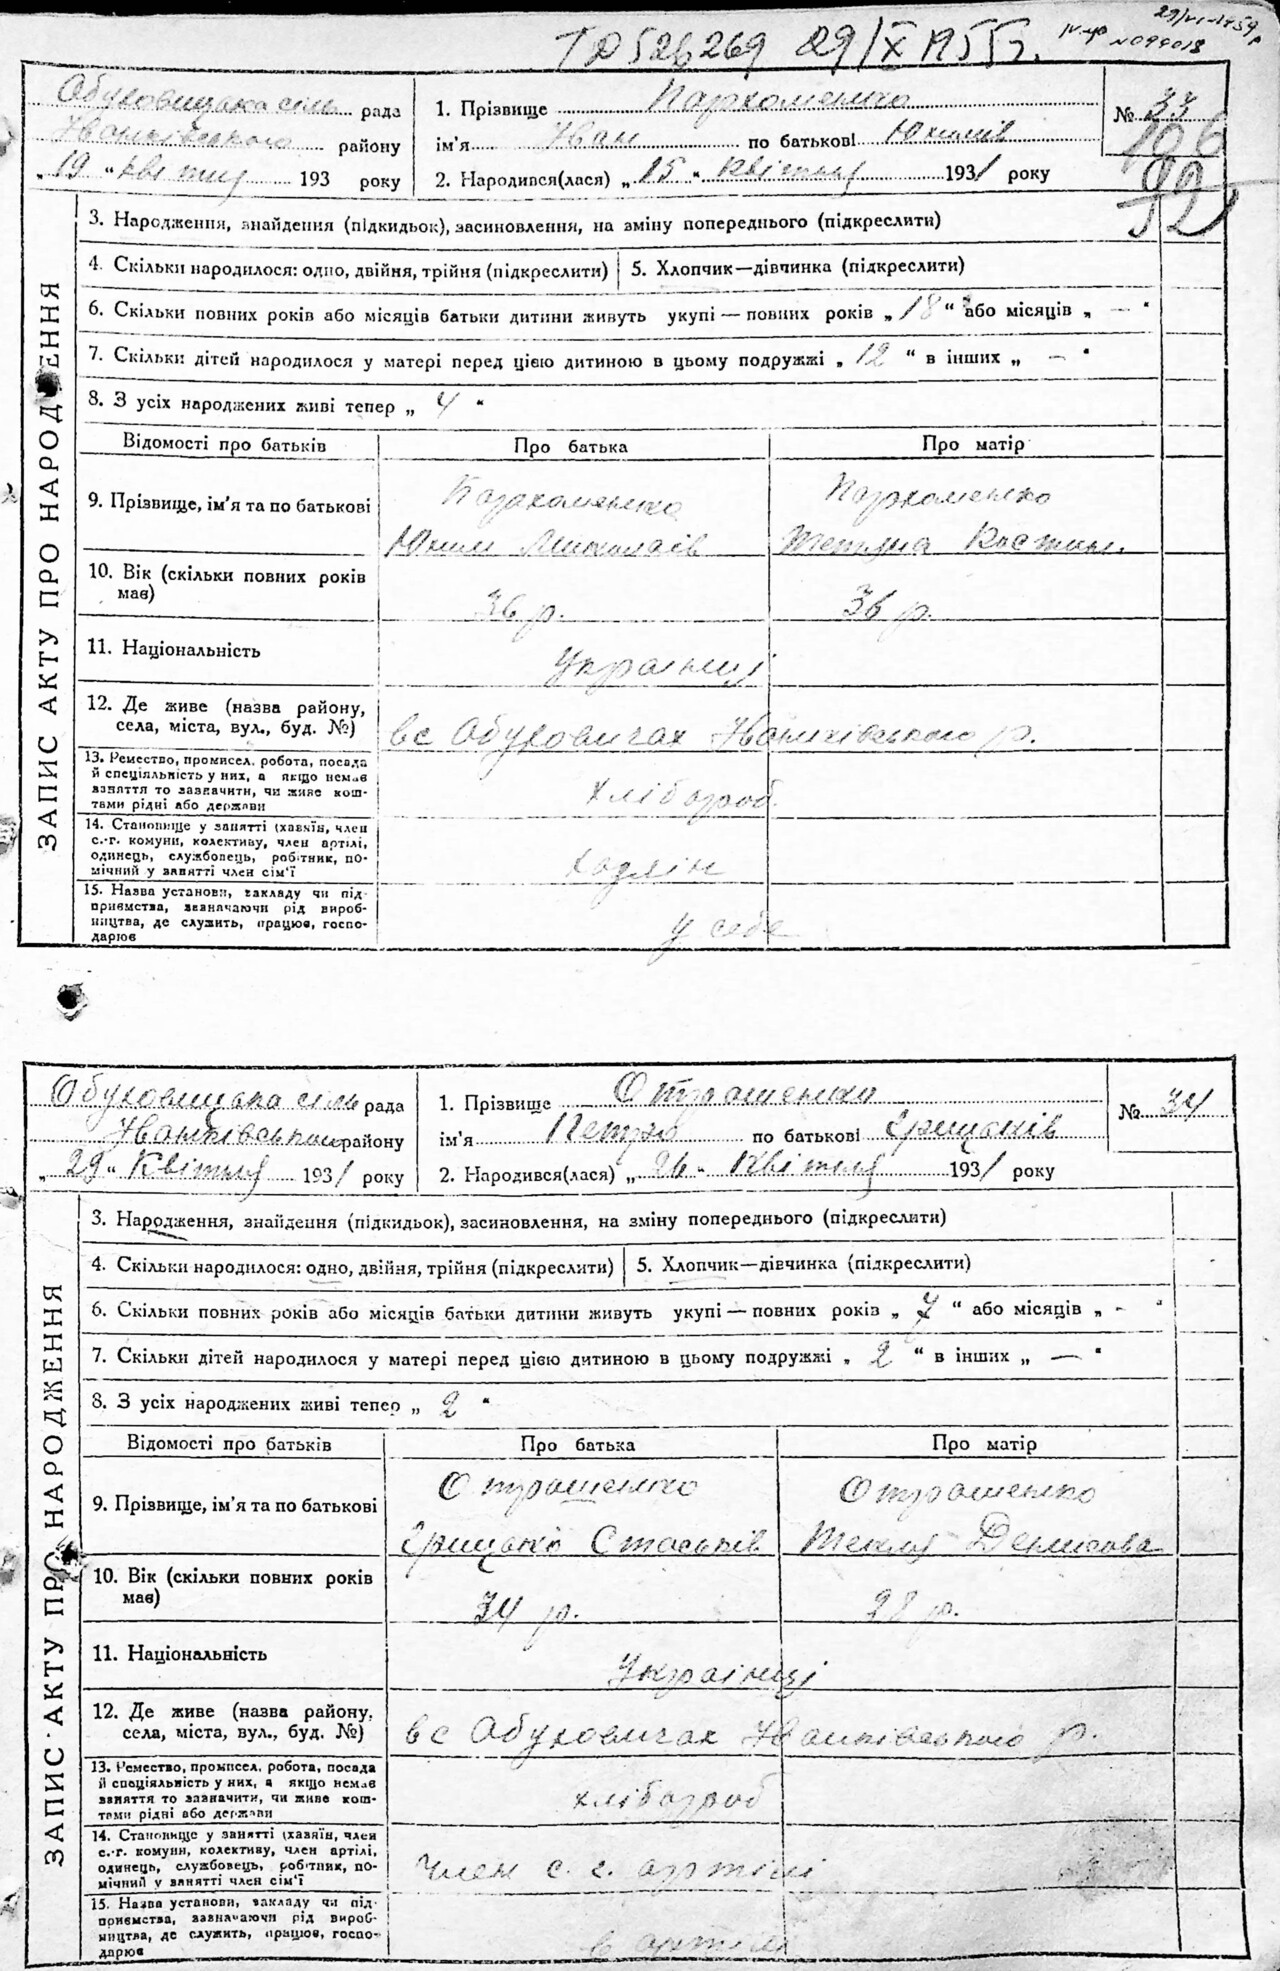 29/VI-1959р
ТД 526269 29/IX 1955г.
N 099018
Обуховицька сіль рада
Іванківського району
„19“ квітня 193 року
1. Прізвище Пархоменко
ім'я Іван по батькові Юхимів
2. Народився(лася) „15“ Квітня 1931 року
№ 33
106
92
ЗАПИС АКТУ ПРО НАРОДЖЕННЯ
3. Народження, знайдення (підкидьок), засиновлення, на зміну попереднього (підкреслити)
4. Скільки народилося: одно, двійня, трійня (підкреслити) 5. Хлопчик—дівчинка (підкреслити)
6. Скільки повних років або місяців батьки дитини живуть укупі — повних років „18“ або місяців „—“
7. Скільки дітей народилося у матері перед цією дитиною в цьому подружжі „12“ в інших „—“
8. З усіх народжених живі тепер „4“
Відомості про батьків Про батька Про матір
9. Прізвище, ім'я та по батькові
Пархоменко Пархоменко
Юхим Миколаїв Тетяна Костян.
10. Вік (скільки повних років
має)
36 р. 36 р.
11. Національність
Українці
12. Де живе (назва району,
села, міста, вул., буд. №)
в с Обуховичах Іванківського р.
13. Ремество, промисел, робота, посада
й спеціяльність у них, а якщо немає
заняття то зазначити, чи живе кош-
тами рідні або держави
хлібороб
14. Становище у занятті (хазяїн, член
с.-г. комуни, колективу, член артілі,
одинець, службовець, робітник, по-
мічний у занятті член сім'ї
хазяїн
15. Назва установи, закладу чи під-
приємства, зазначаючи рід вироб-
ництва, де служить, працює, госпо-
дарює
у себе
Обуховицька сіль рада
Іванківського району
„29“ Квітня 1931 року
1. Прізвище Отрашенко
ім'я Петро по батькові Грицьків
2. Народився(лася) „26“ Квітня 1931 року
№ 34
ЗАПИС АКТУ ПРО НАРОДЖЕННЯ
3. Народження, знайдення (підкидьок), засиновлення, на зміну попереднього (підкреслити)
4. Скільки народилося: одно, двійня, трійня (підкреслити) 5. Хлопчик—дівчинка (підкреслити)
6. Скільки повних років або місяців батьки дитини живуть укупі — повних років „7“ або місяців „-“
7. Скільки дітей народилося у матері перед цією дитиною в цьому подружжі „2“ в інших „—“
8. З усіх народжених живі тепер „2“
Відомості про батьків Про батька Про матір
9. Прізвище, ім'я та по батькові
Отрашенко Отрашенко
Грицько Стаськів Текля Денисова
10. Вік (скільки повних років
має)
34 р. 28 р.
11. Національність
Українці
12. Де живе (назва району,
села, міста, вул., буд. №)
в с Обуховичах Іванківського р.
13. Ремество, промисел, робота, посада
й спеціяльність у них, а якщо немає
заняття то зазначити, чи живе кош-
тами рідні або держави
хлібороб
14. Становище у занятті (хазяїн, член
с.-г. комуни, колективу, член артілі,
одинець, службовець, робітник, по-
мічний у занятті член сім'ї
член с. г. артілі
15. Назва установи, закладу чи під-
приємства, зазначаючи рід вироб-
ництва, де служить, працює, госпо-
дарює
в артілі